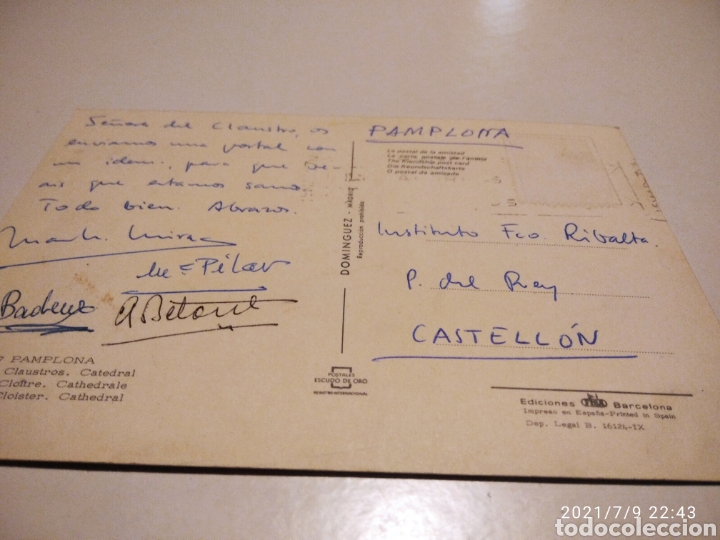 Señores del Claustro, os
enviamos una postal con
un idem, para que ve-
ais que estamos sanos.
Todo bien. Abrazos.
Mª Pilar
PAMPLONA
La postal de la amistad
The friendship post-card
Die Freundschaftskarte
O postal da amizade
DOMINGUEZ - MADRID
Reproducción prohibida
Instituto Fco Ribalta.
P. del Rey
CASTELLÓN
7 PAMPLONA
Claustros. Catedral
Cloître. Cathedrale
Cloister. Cathedral
POSTALES
ESCUDO DE ORO
REGISTRO INTERNACIONAL
Ediciones Barcelona
Impreso en España-Printed in Spain
Dep. Legal B. 16124-IX
2021/7/9 22:43
todocoleccion